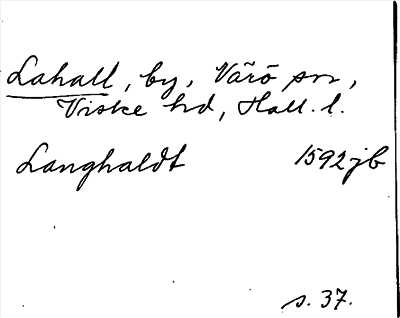 Lahall, by, Värö sn,
Viske hd, Hall. l.
Langhaldt 1592 jb
s. 37.